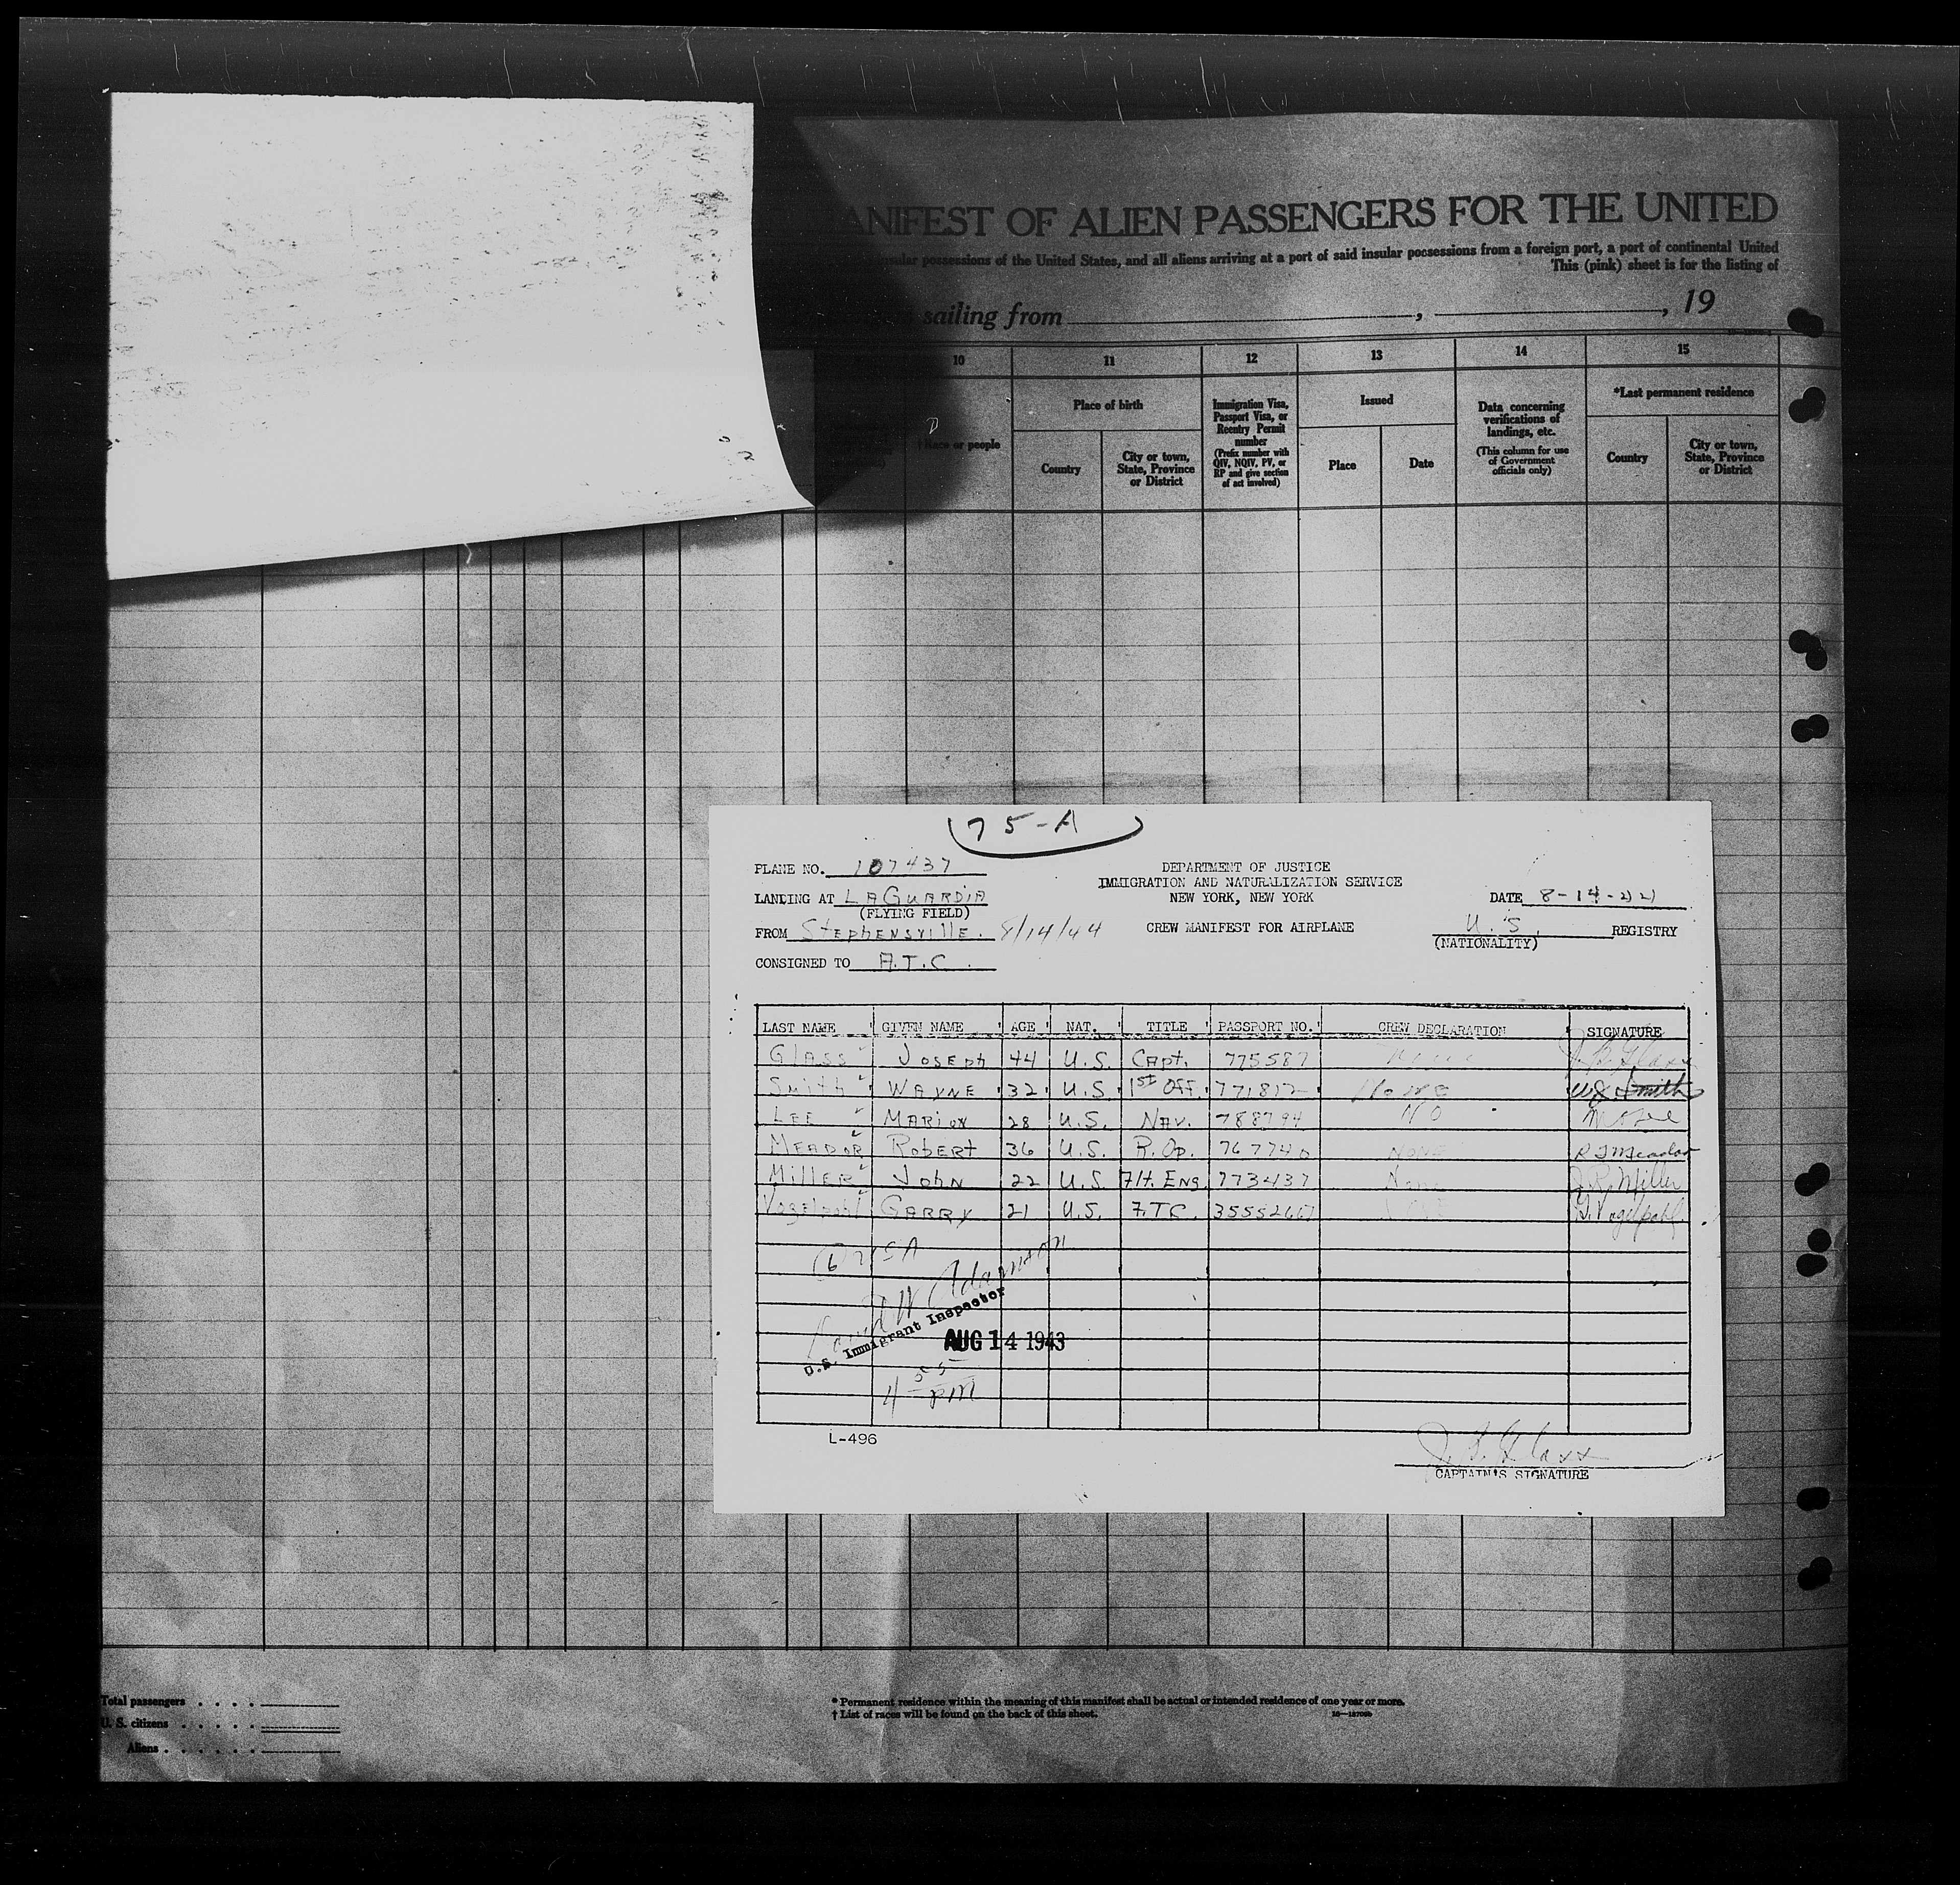 ANIFEST OF ALIEN PASSENGERS FOR THE UNITED
insular possessions of the United States, and all aliens arriving at a port of said insular possessions from a foreign port, a port of continental United
This (pink) sheet is for the listing of
sailing from , , 19
10 11 12 13 14 15
† Race or people
Place of birth
Country
City or town, State, Province or District
Immigration Visa, Passport Visa, or Reentry Permit number
(Prefix number with QIV, NQIV, PV, or RP and give section of act involved)
Issued
Place Date
Data concerning verifications of landings, etc.
(This column for use of Government officials only)
*Last permanent residence
Country
City or town, State, Province or District
75-A
PLANE NO. 107437
DEPARTMENT OF JUSTICE
IMMIGRATION AND NATURALIZATION SERVICE
NEW YORK, NEW YORK
LANDING AT LAGUARDIA
(FLYING FIELD)
DATE 8-14-44
FROM STEPHENSVILLE. 8/14/44
CREW MANIFEST FOR AIRPLANE
U.S. REGISTRY
(NATIONALITY)
CONSIGNED TO A.T.C.
LAST NAME GIVEN NAME AGE NAT. TITLE PASSPORT NO. CREW DECLARATION SIGNATURE
GLASS JOSEPH 44 U.S. CAPT. 775587 None
SMITH WAYNE 32 U.S. 1ST OFF. 771812 None W.J. Smith
LEE MARION 28 U.S. NAV. 788794 NO
MEADOR ROBERT 36 U.S. R.OP. 767740 NONE R J Meador
MILLER JOHN 22 U.S. Flt. ENG. 773437 None J.R. Miller
Vogelpohl GARRY 21 U.S. F.T.C. G. Vogelpohl
(6) USA
W Adamson
U.S. Immigrant Inspector
AUG 14 1943
4 55 PM
L-496
CAPTAIN'S SIGNATURE
Total passengers
U. S. citizens
Aliens
* Permanent residence within the meaning of this manifest shall be actual or intended residence of one year or more.
† List of races will be found on the back of this sheet.